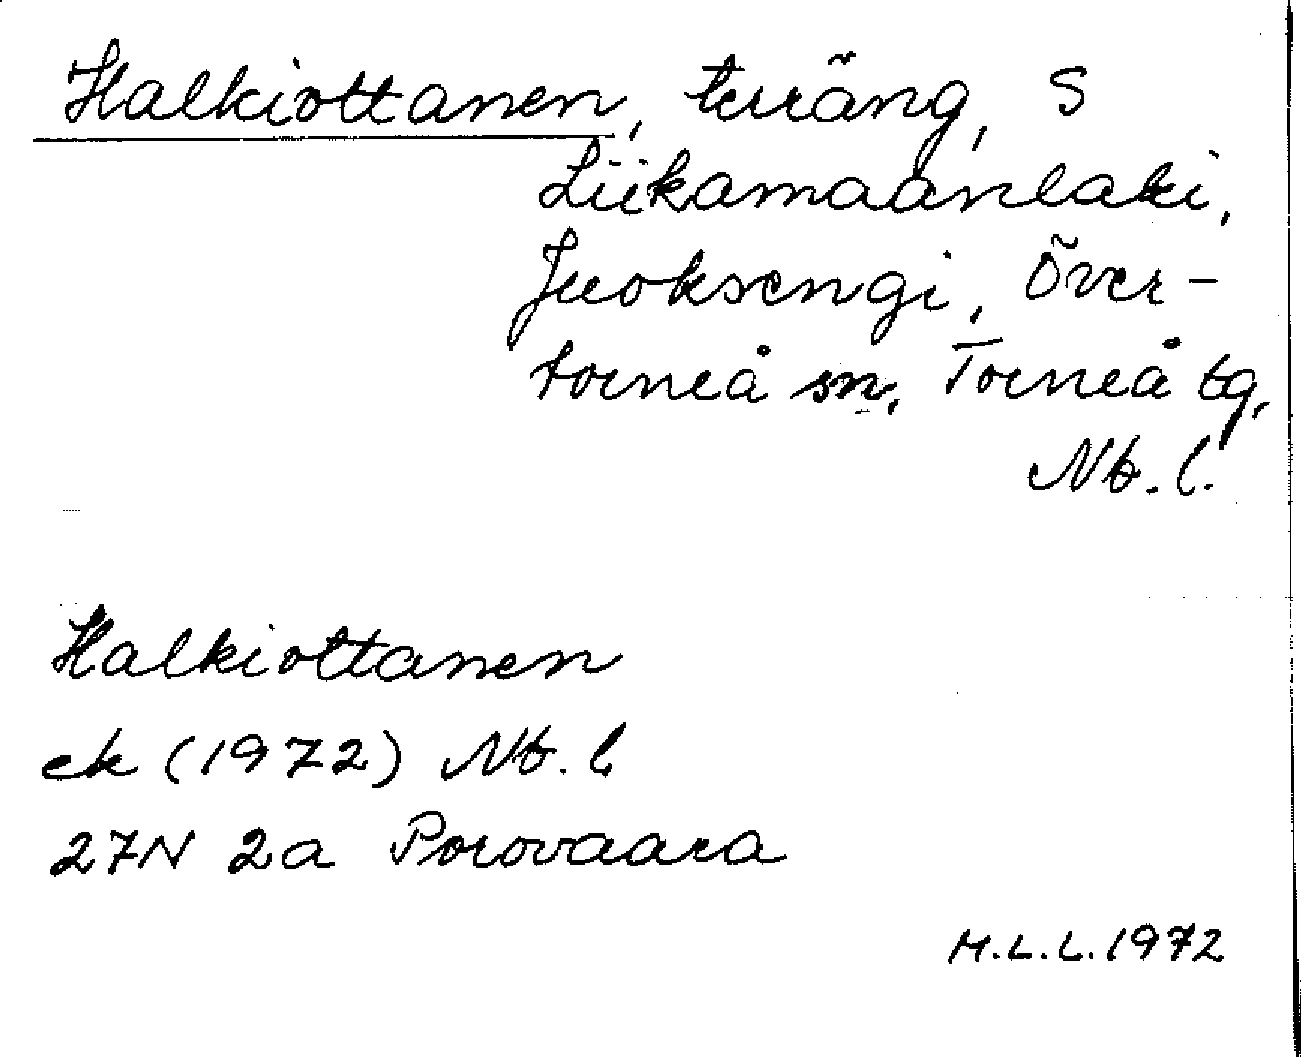 Halkiottanen, terräng, S
Liikamaanlaki,
Juoksengi, Över-
torneå sn, Torneå tg,
Nb. l.
Halkiottanen
ek (1972) Nb. l
27N 2a Porovaara
M.L.L. 1972